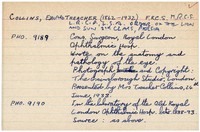 COLLINS, EDWARD TREACHER (1862-1932) F.R.C.S., M.R.C.S.
L.R.C.P., L.S.A., ORDER OF THE LION
AND SUN 3rd CLASS, PERSIA
PHO. 9189 Cons. Surgeon, Royal London
Ophthalmic Hosp.
Wrote on the anatomy and
pathology of the eye.
Photograph Copyright:
The Gainsborough Studio, London
Presented by Mrs Treacher Collins, 24th
June, 1933.
PHO. 9190 In the laboratory of the Old Royal
London Ophthalmic Hosp. Oct. 1888-93
Source: as above.